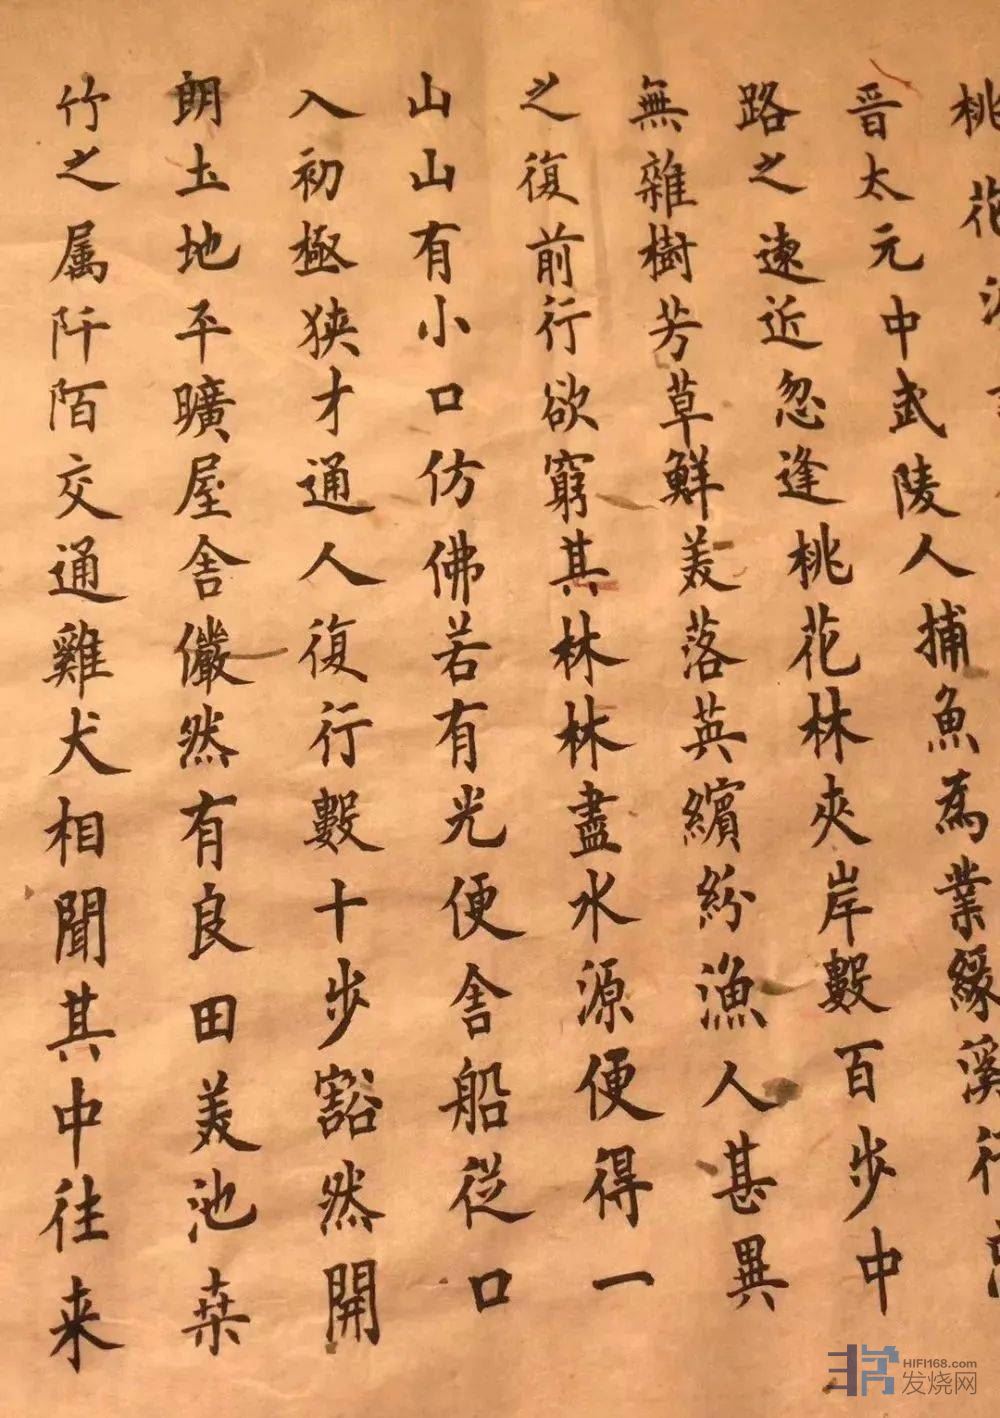 桃花
晋太元中武陵人捕魚為業緣溪行忘
路之遠近忽逢桃花林夾岸數百步中
無雜樹芳草鮮美落英繽紛漁人甚異
之復前行欲窮其林林盡水源便得一
山山有小口仿佛若有光便舍船從口
入初極狭才通人復行數十步豁然開
朗土地平曠屋舍儼然有良田美池桒
竹之属阡陌交通雞犬相聞其中往来
HIFI168.com
发烧网